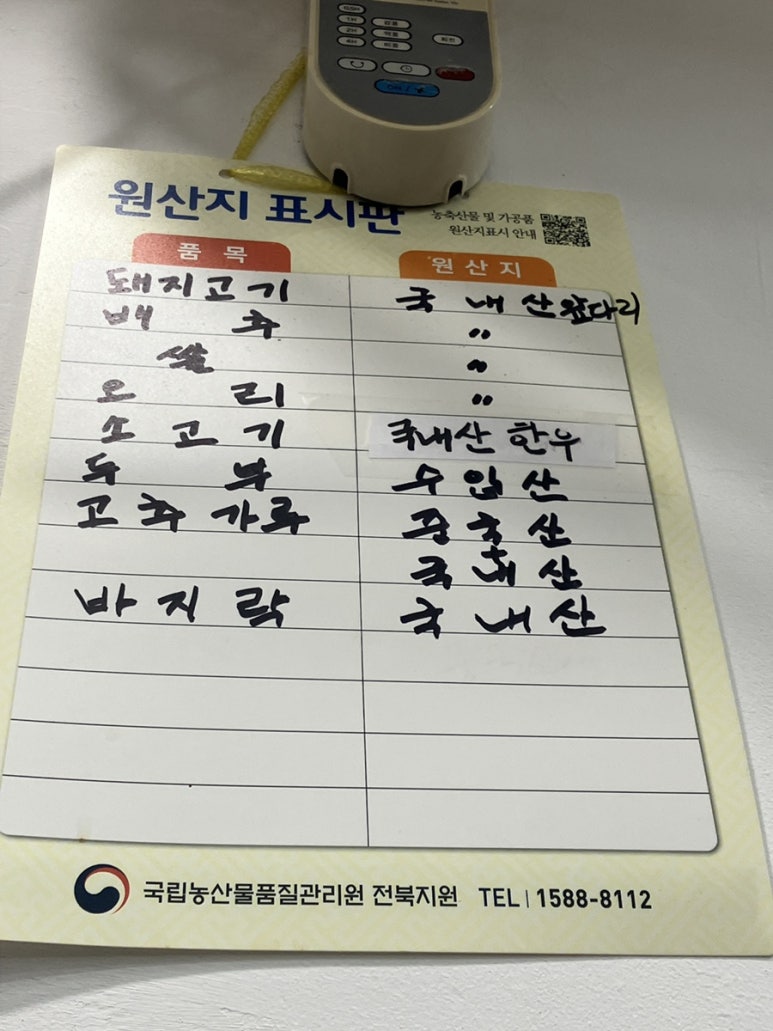 원산지 표시판
농축산물 및 가공품
원산지표시 안내
품목 원산지
돼지고기 국내산 앞다리
배추 〃
쌀 〃
오리 〃
소고기 국내산 한우
두부 수입산
고추가루 중국산
국내산
바지락 국내산
국립농산물품질관리원 전북지원 TEL | 1588-8112